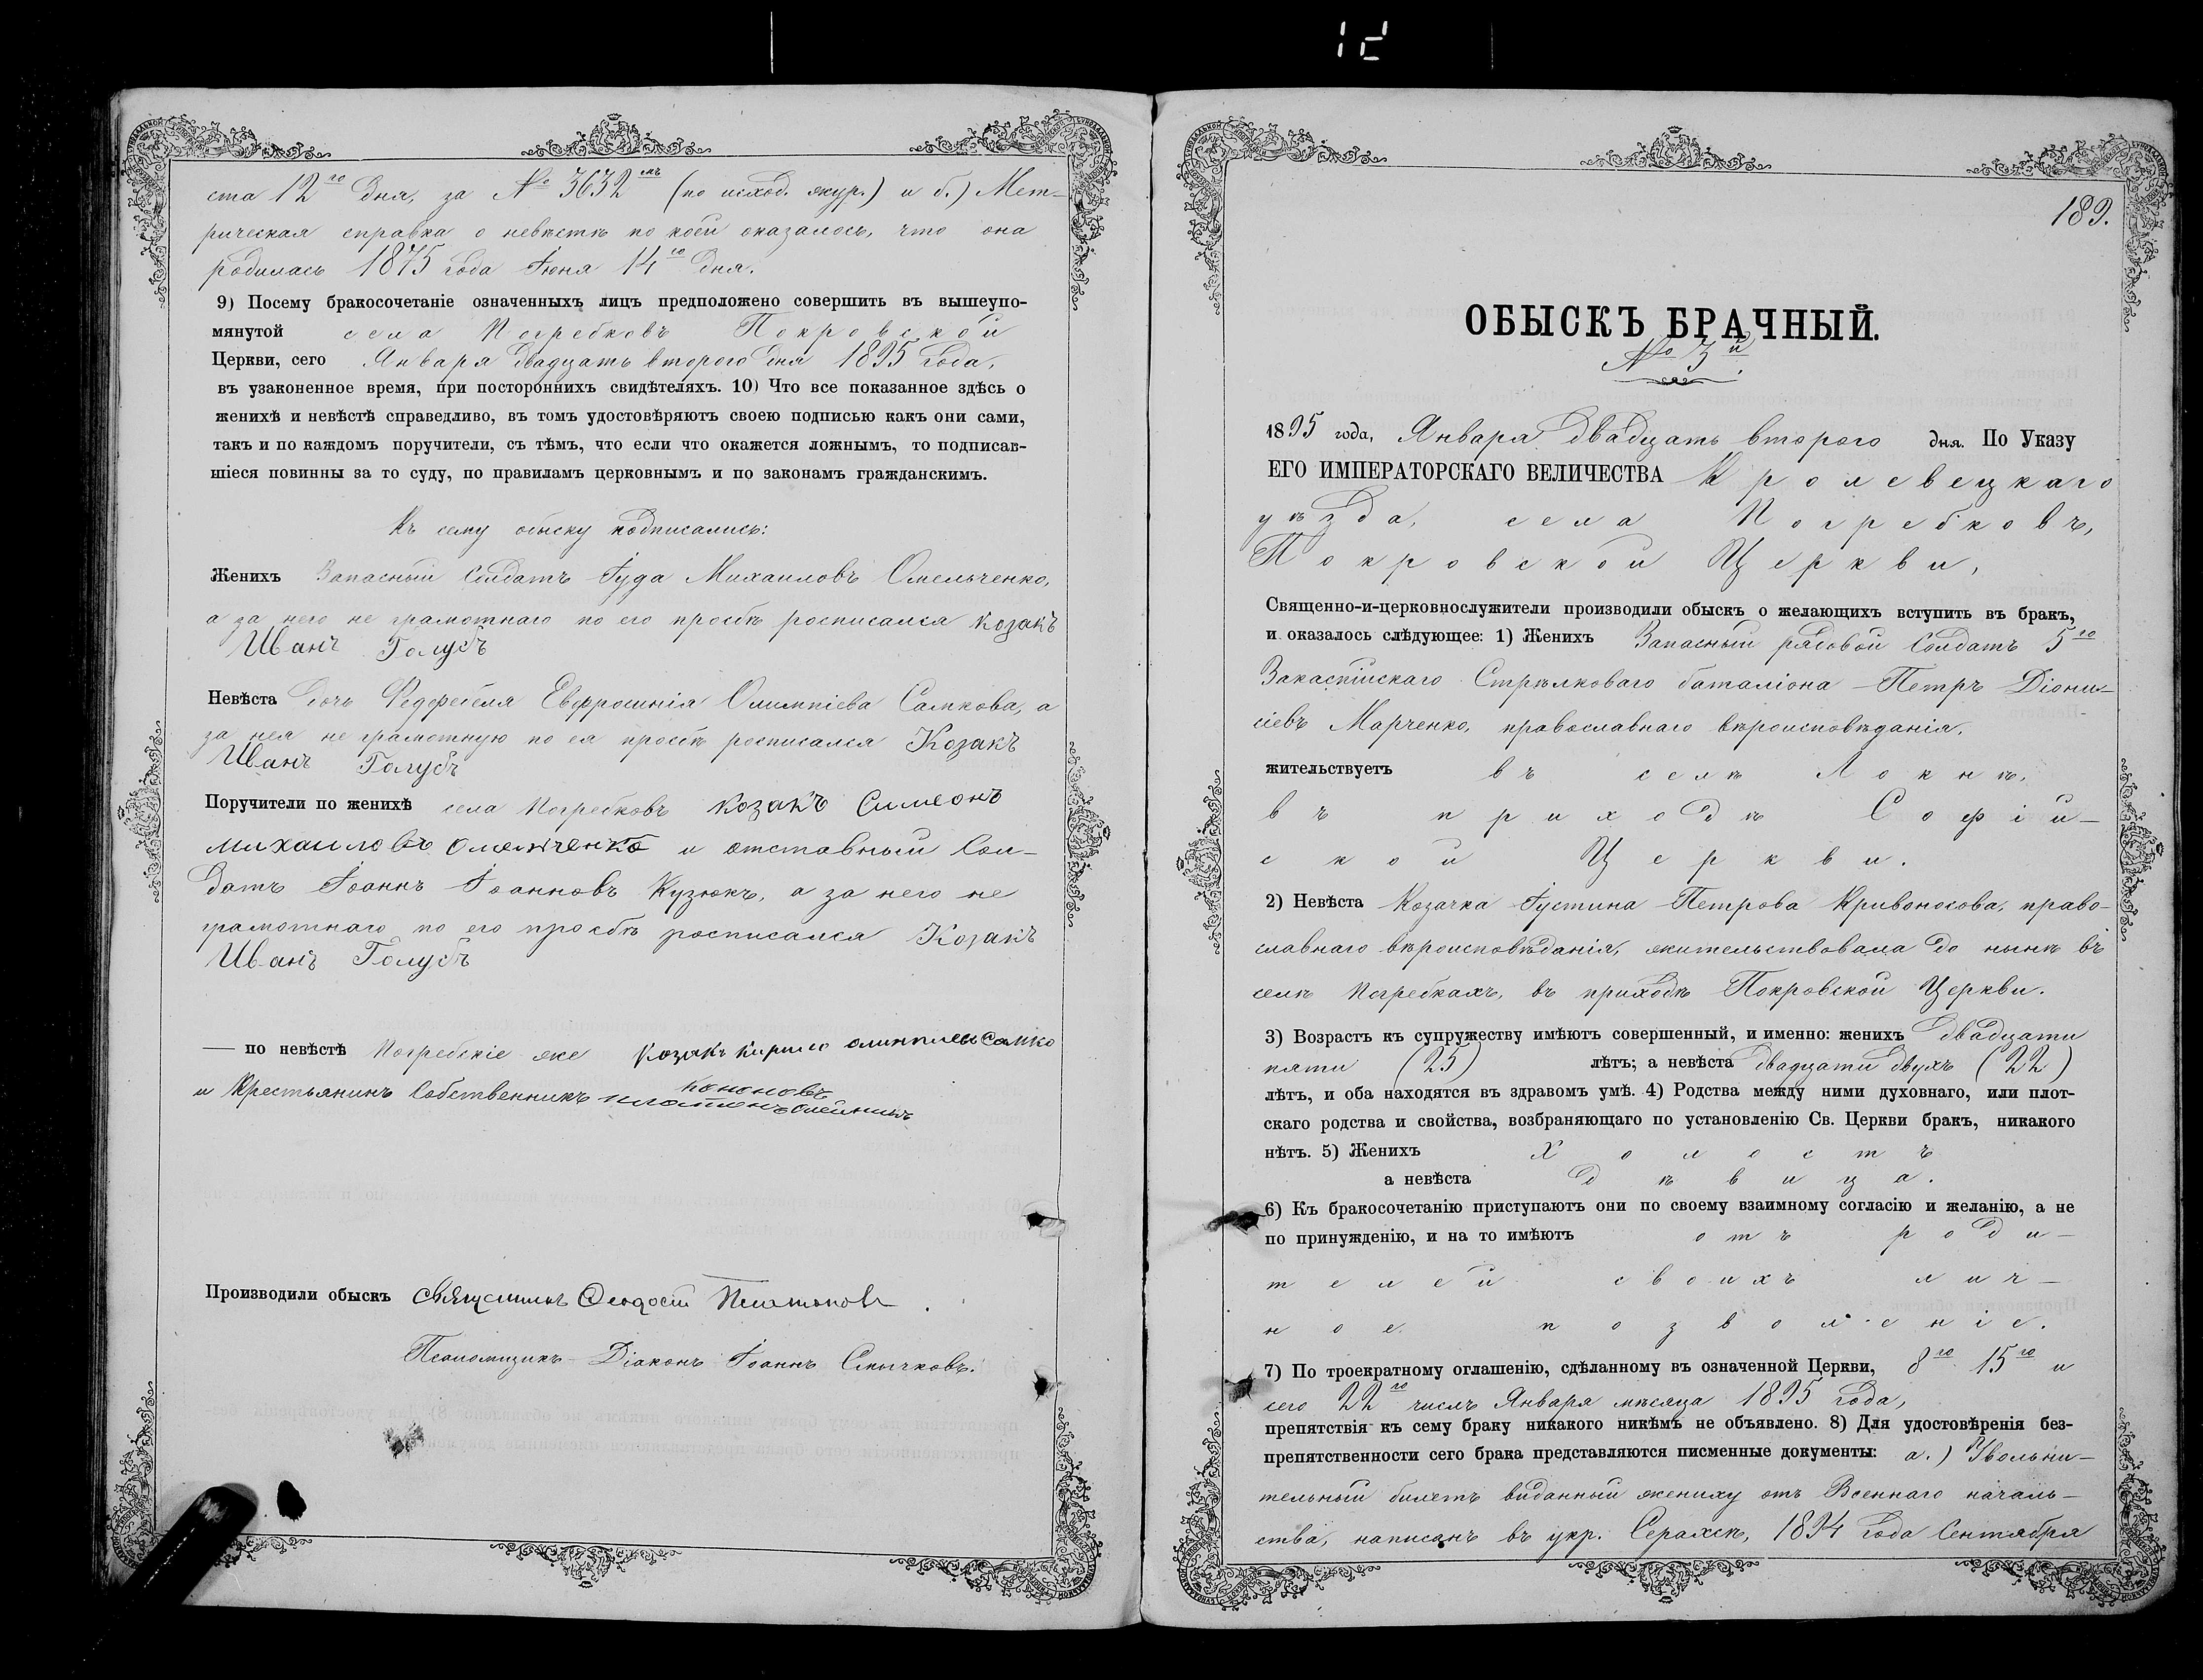 12
ста 12го дня, за № 3632мъ (по исход. жур.) и б.) Мет-
рическая справка о невѣстѣ по коей оказалось, что она
родилась 1875 года Іюня 14го дня.
9) Посему бракосочетаніе означенныхъ лицъ предположено совершить въ вышеупо-
мянутой села Погребковъ Покровской
Церкви, сего Января двадцать второго дня 1895 года,
въ узаконенное время, при постороннихъ свидѣтеляхъ. 10) Что все показанное здѣсь о
женихѣ и невѣстѣ справедливо, въ томъ удостовѣряютъ своею подписью какъ они сами,
такъ и по каждомъ поручители, съ тѣмъ, что если что окажется ложнымъ, то подписав-
шіеся повинны за то суду, по правиламъ церковнымъ и по законамъ гражданскимъ.
Къ сему обыску подписались:
Женихъ Запасный Солдатъ Іуда Михаиловъ Омельченко,
а за него не грамотнаго по его просбѣ росписался козакъ
Иванъ Голубъ
Невѣста дочь Федфебеля Евфросинія Олимпіева Самкова, а
за нея не грамотную по ея просбѣ росписался Козакъ
Иванъ Голубъ
Поручители по женихѣ села Погребковъ козакъ Симеонъ
михаиловъ омельченко и отставный Сол-
датъ Іоаннъ Іоанновъ Кузюкъ, а за него не
грамотнаго по его просбѣ росписался Козакъ
Иванъ Голубъ
— по невѣстѣ Погребскіе же козакъ кирило олимпиев самко
и Крестьянинъ Собственникъ кононовъ
Производили обыскъ Священникъ Феодосій Платонов.
Псаломщикъ-Діаконъ Іоаннъ Смычковъ.
189.
ОБЫСКЪ БРАЧНЫЙ.
№ 3й.
1895 года, Января двадцать второго дня. По Указу
ЕГО ИМПЕРАТОРСКАГО ВЕЛИЧЕСТВА Кролевецкаго
уѣзда, села Погребковъ,
Покровской Церкви,
Священно-и-церковнослужители производили обыскъ о желающихъ вступить въ бракъ,
и оказалось слѣдующее: 1) Женихъ Запасный рядовой Солдатъ 5го
Закаспійскаго Стрѣлковаго баталіона – Петръ Діони-
сіевъ Марченко, православнаго вѣроисповѣданія,
жительствуетъ въ селѣ Локнѣ,
въ приходѣ Софій-
ской Церкви.
2) Невѣста Козачка Іустина Петрова Кривоносова, право-
славнаго вѣроисповѣданія, жительствовала до нынѣ въ
селѣ Погребкахъ, въ приходѣ Покровской Церкви.
3) Возрастъ къ супружеству имѣютъ совершенный, и именно: женихъ двадцати
пяти (25) лѣтъ; а невѣста двадцати двухъ (22)
лѣтъ, и оба находятся въ здравомъ умѣ. 4) Родства между ними духовнаго, или плот-
скаго родства и свойства, возбраняющаго по установленію Св. Церкви бракъ, никакого
нѣтъ. 5) Женихъ Холостъ
а невѣста дѣвица.
6) Къ бракосочетанію приступаютъ они по своему взаимному согласію и желанію, а не
по принужденію, и на то имѣютъ отъ роди-
телей своихъ лич-
ное позволеніе.
7) По троекратному оглашенію, сдѣланному въ означенной Церкви, 8го 15го и
сего 22го числъ Января мѣсяца 1895 года,
препятствія къ сему браку никакого никѣмъ не объявлено. 8) Для удостовѣренія без-
препятственности сего брака представляются писменные документы: а.) Увольни-
тельный билетъ виданный жениху отъ Военнаго началь-
ства, написанъ въ укр. Серахсѣ, 1894 года Сентября